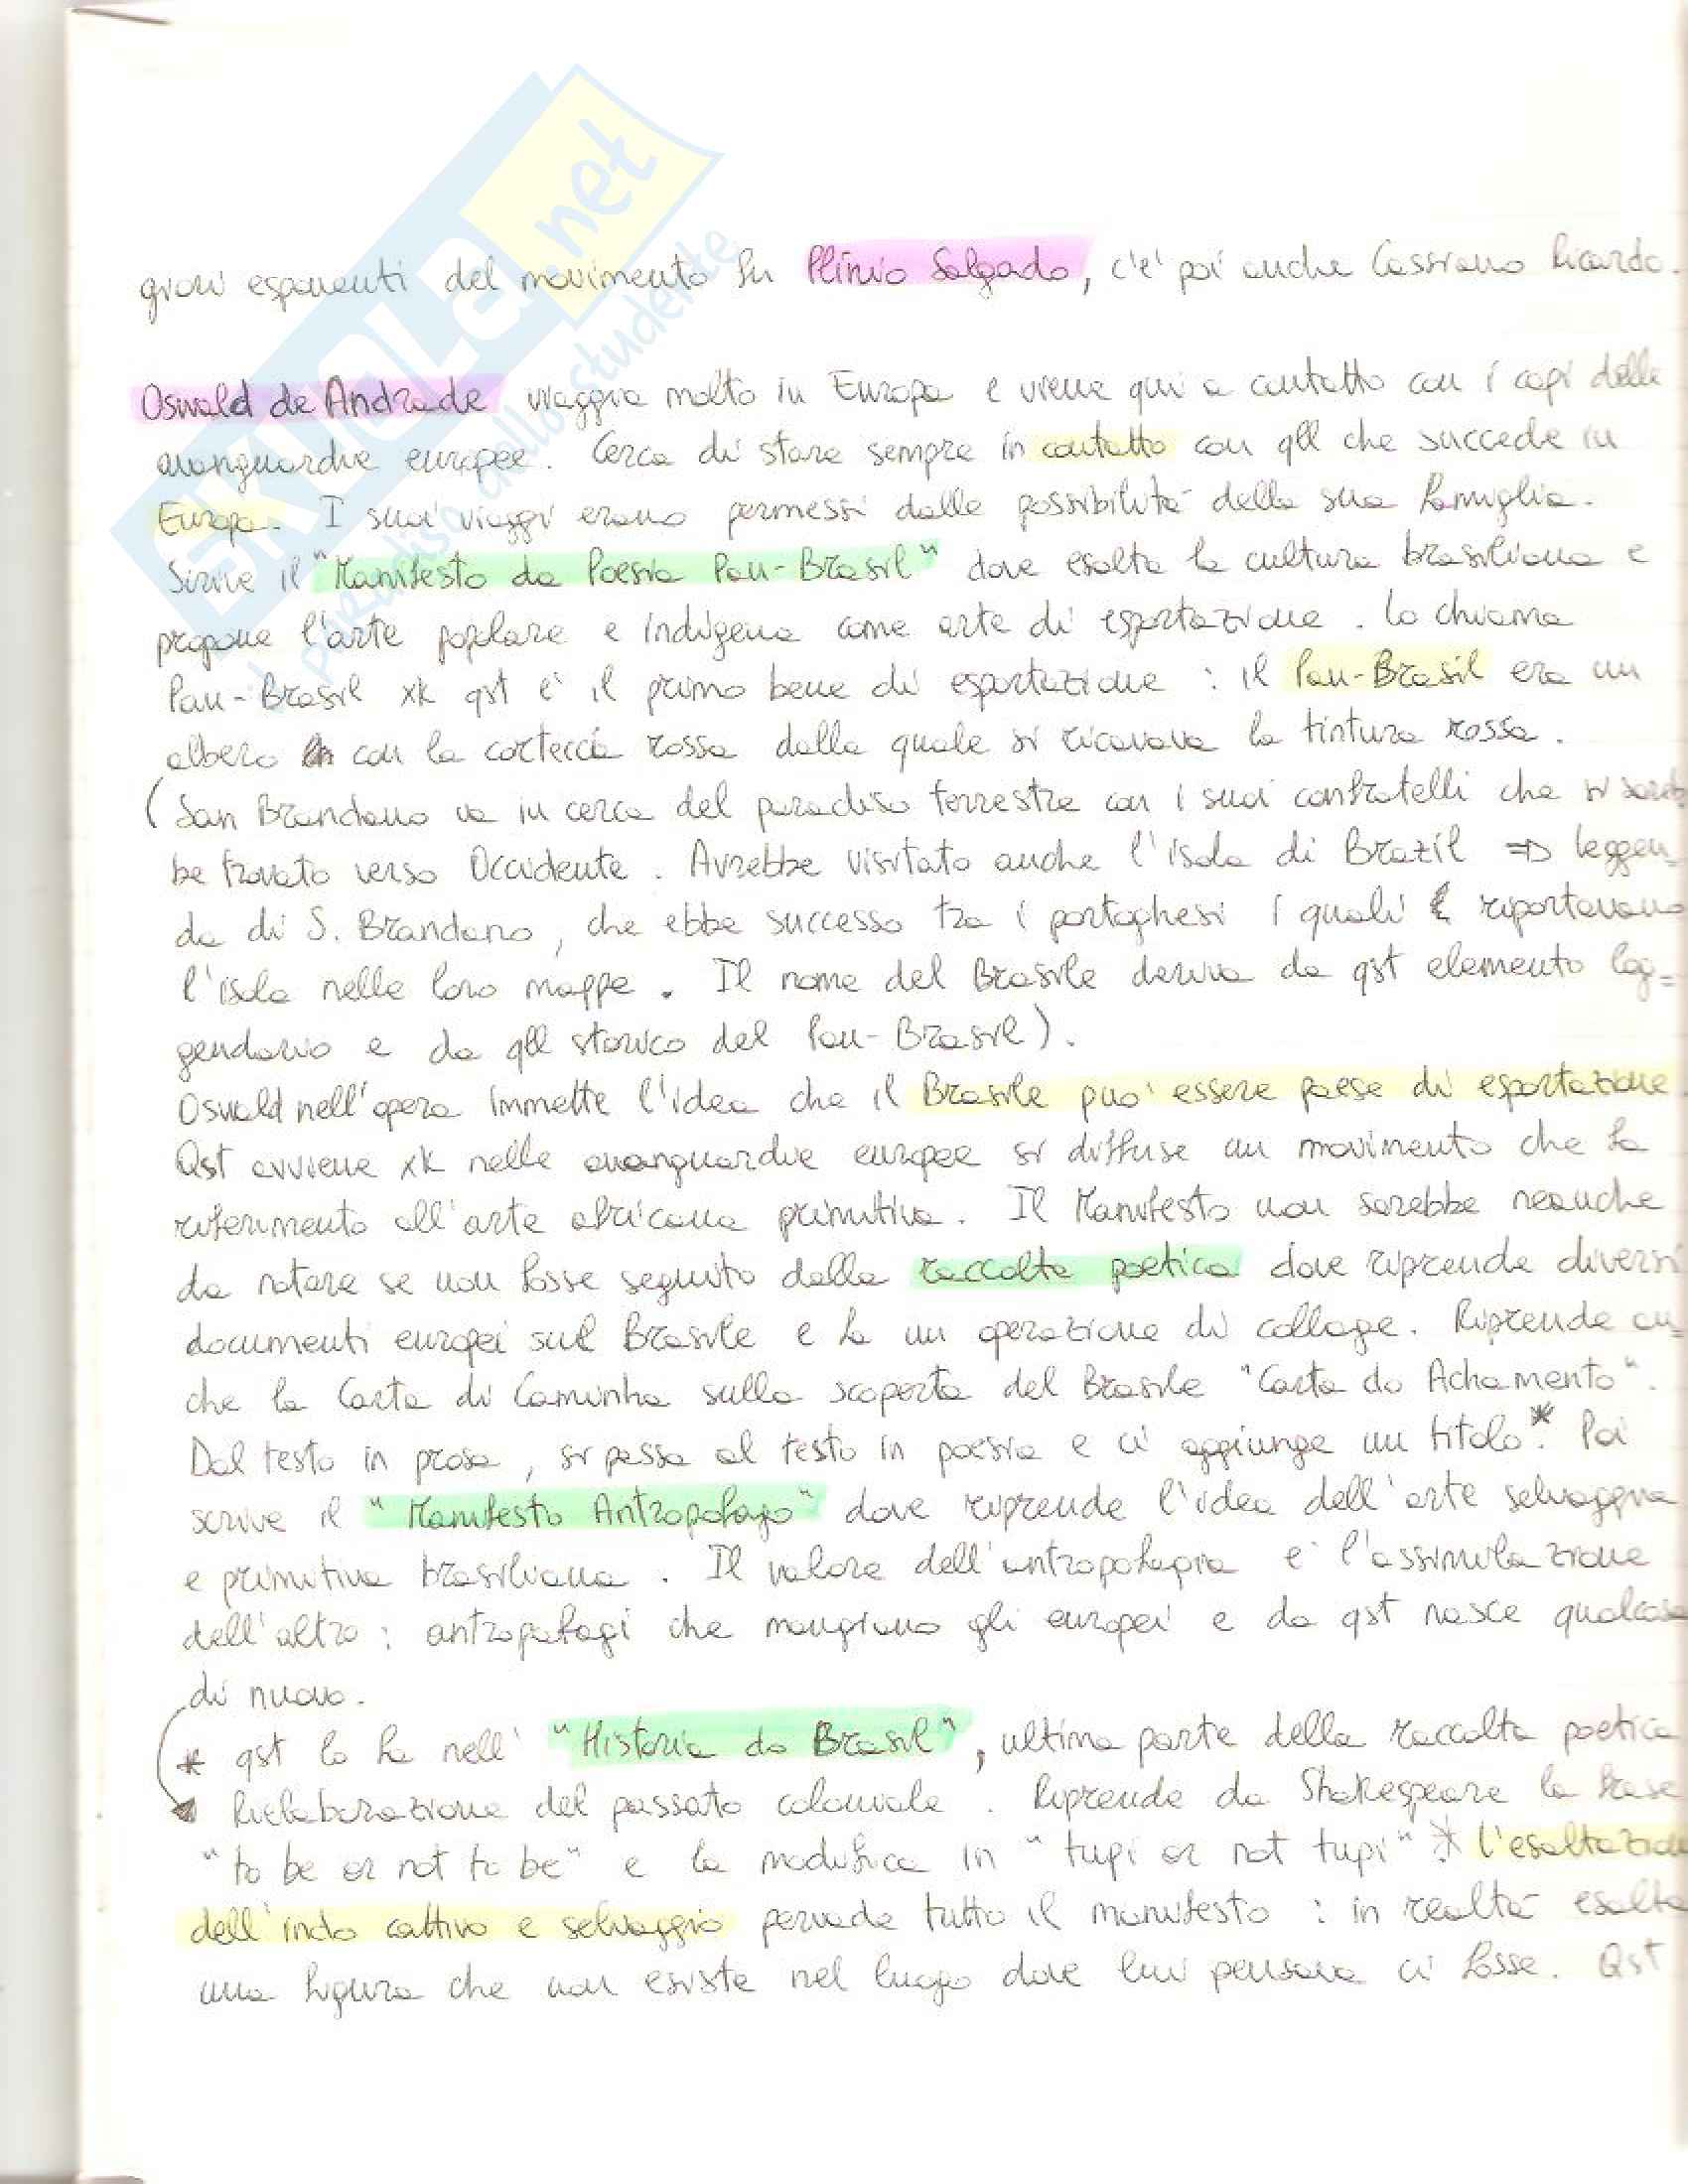 SKUOLA.net
il paradiso dello studente
giori esponenti del movimento fu Plínio Salgado, c'è poi anche Cassiano Ricardo.
Oswald de Andrade viaggia molto in Europa e viene qui a contatto con i capi delle
avanguardie europee. Cerca di stare sempre in contatto con qll che succede in
Europa. I suoi viaggi erano permessi dalle possibilità della sua famiglia.
Scrive il "Manifesto da Poesia Pau-Brasil" dove esalta la cultura brasiliana e
propone l'arte popolare e indigena come arte di esportazione. Lo chiama
Pau-Brasil xk qst è il primo bene di esportazione: il Pau-Brasil era un
albero con la corteccia rossa dalla quale si ricavava la tintura rossa.
(San Brandano va in cerca del paradiso terrestre con i suoi confratelli che si sareb
be trovato verso Occidente. Avrebbe visitato anche l'isola di Brazil => leggen_
da di S. Brandano, che ebbe successo tra i portoghesi i quali riportavano
l'isola nelle loro mappe. Il nome del Brasile deriva da qst elemento leg=
gendario e da qll storico del Pau-Brasil).
Osvald nell'opera immette l'idea che il Brasile può essere paese di esportazione.
Qst avviene xk nelle avanguardie europee si diffuse un movimento che fa
riferimento all'arte africana primitiva. Il Manifesto non sarebbe neanche
da notare se non fosse seguito dalla raccolta poetica dove riprende diversi
documenti europei sul Brasile e fa un operazione di collage. Riprende an_
che la Carta di Caminha sulla scoperta del Brasile "Carta do Achamento".
Dal testo in prosa, si passa al testo in poesia e ci aggiunge un titolo*. Poi
scrive il "Manifesto Antropofago" dove riprende l'idea dell'arte selvaggia
e primitiva brasiliana. Il valore dell'antropofagia è l'assimilazione
dell'altro: antropofagi che mangiano gli europei e da qst nasce qualcosa
di nuovo.
* qst lo fa nell' "Historia do Brasil", ultima parte della raccolta poetica
Rielaborazione del passato coloniale. Riprende da Shakespeare la frase
"to be or not to be" e la modifica in "tupi or not tupi" * l'esaltazione
dell'indo cattivo e selvaggio pervade tutto il manifesto: in realtà esalta
una figura che non esiste nel luogo dove lui pensava ci fosse. Qst